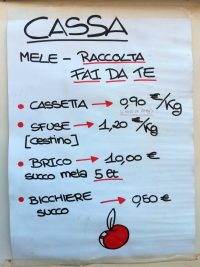 CASSA
MELE - RACCOLTA
FAI DA TE
• CASSETTA → 0,90 €/Kg
• SFUSE → 1,20 €/Kg
[cestino]
• BRICO → 10,00 €
succo mela 5 lt
• BICCHIERE → 0,50 €
succo